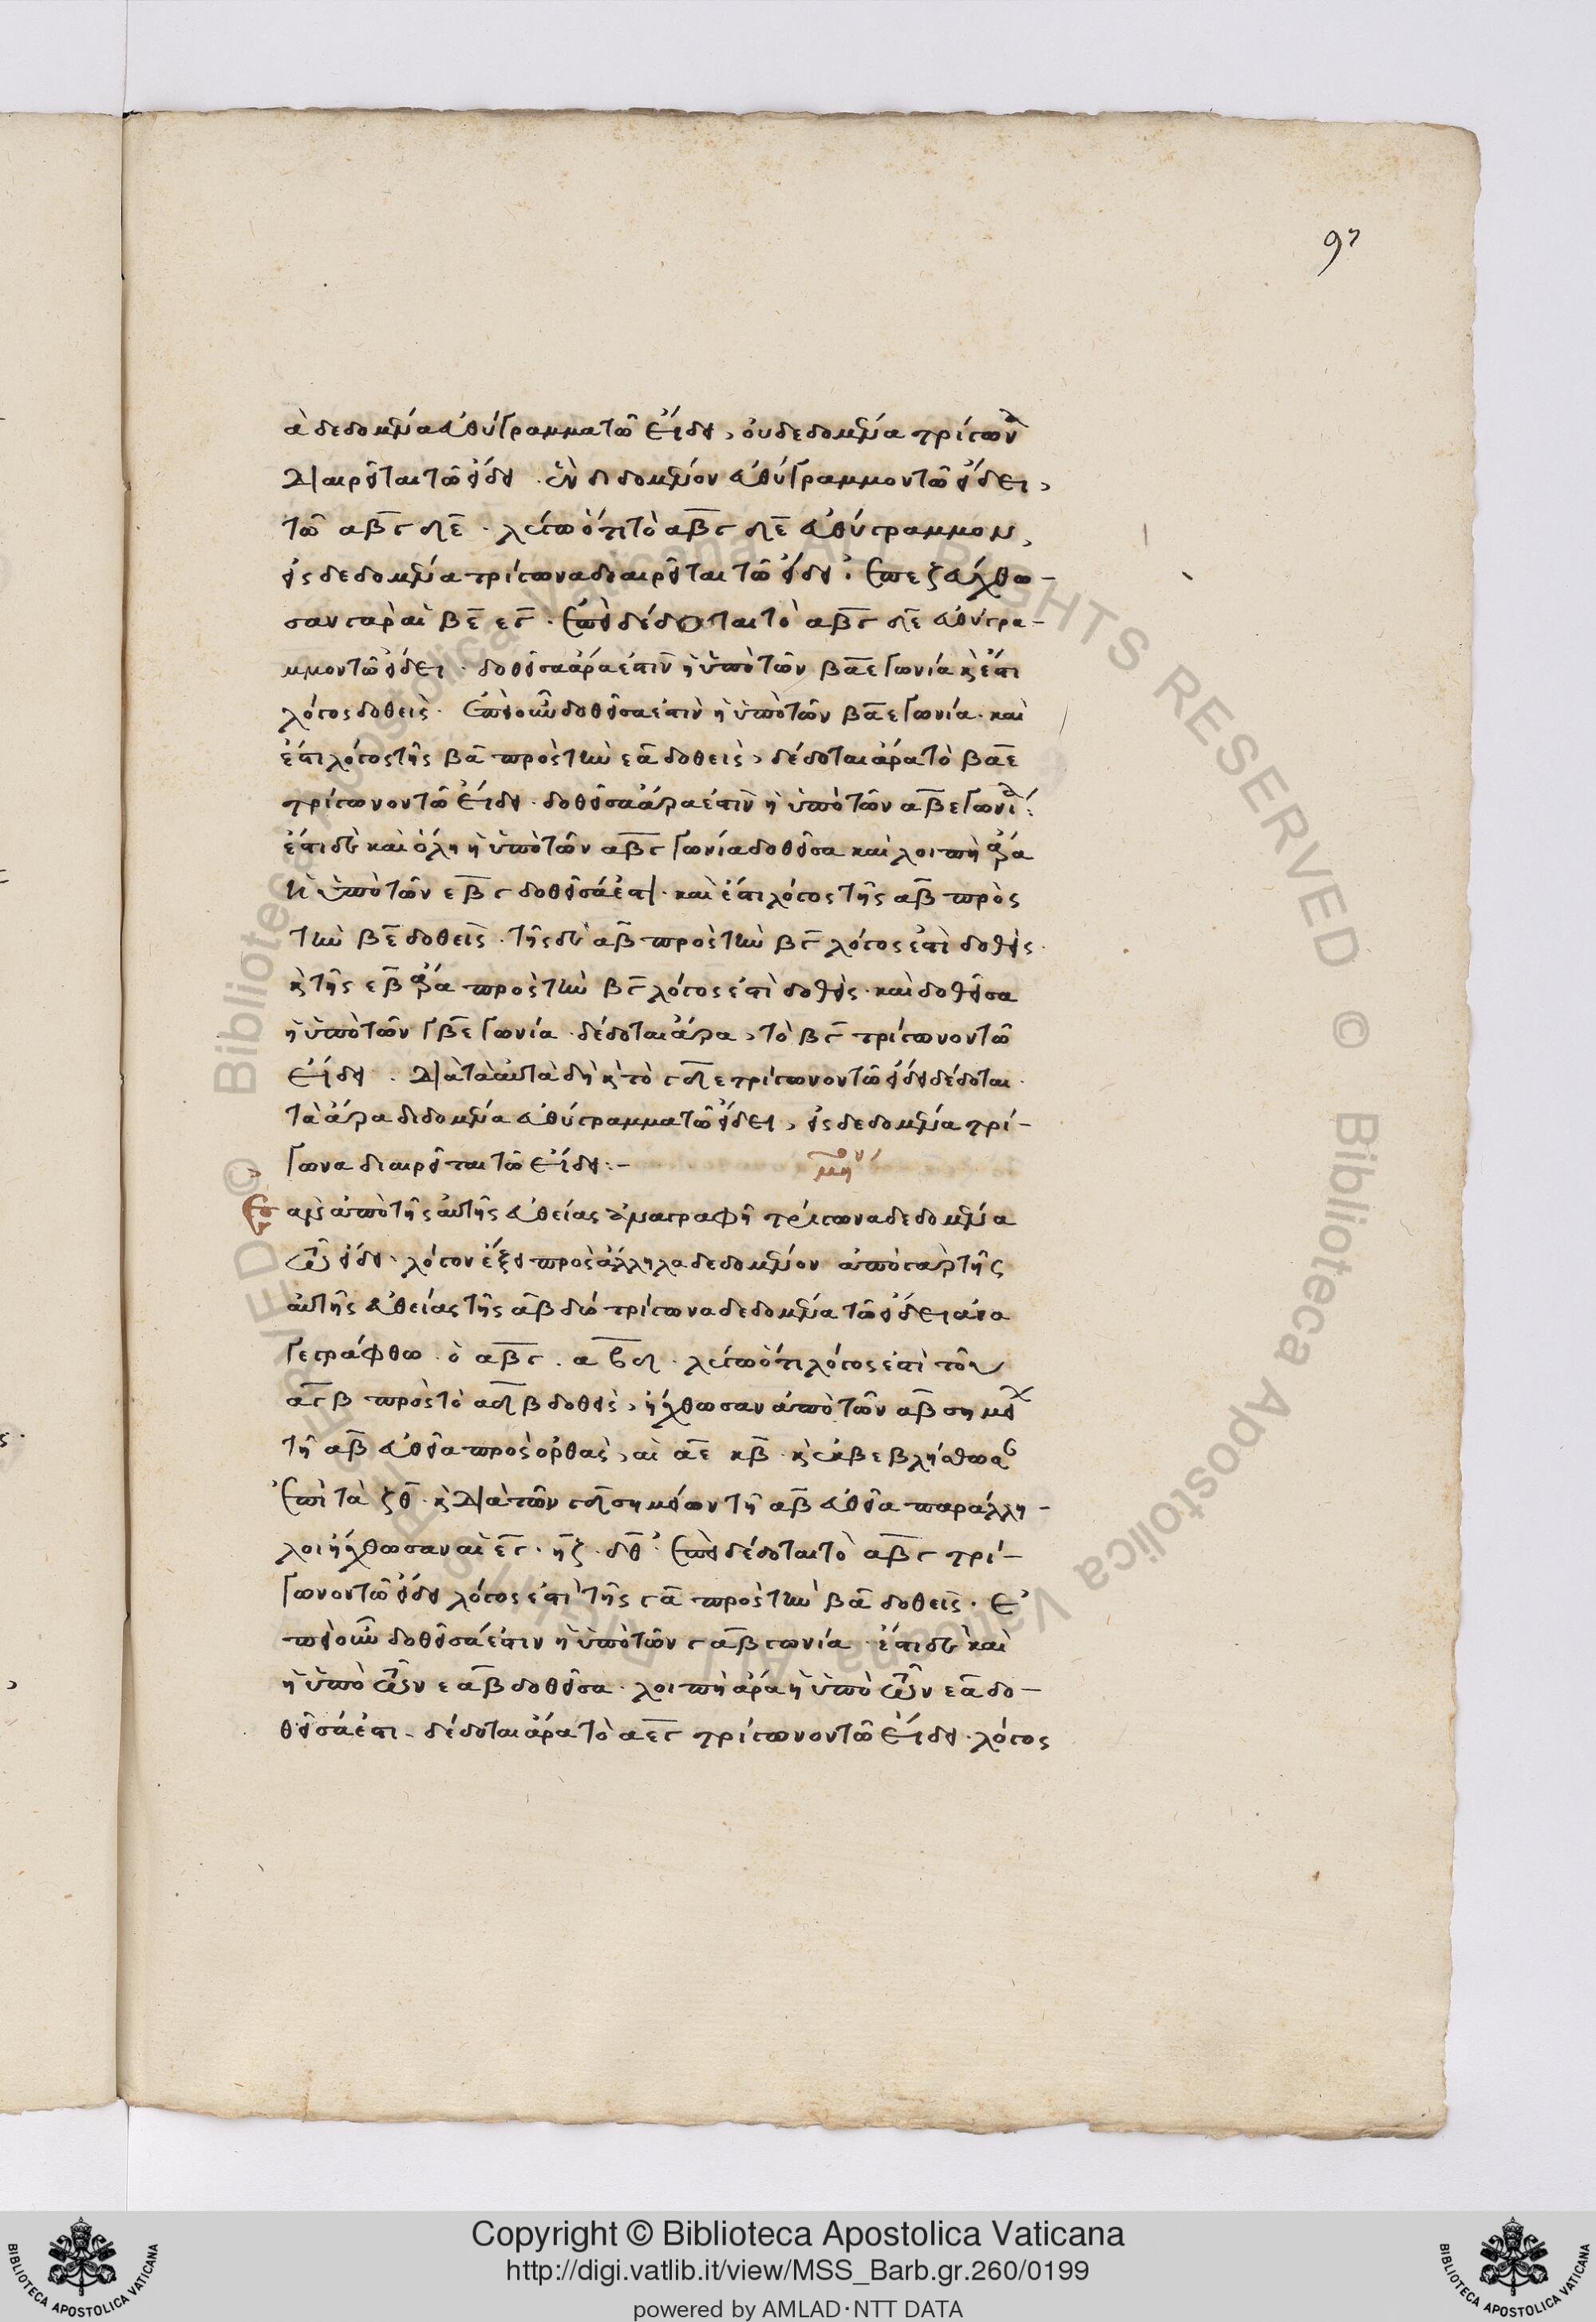 97
ὰ δεδομένα εὐθύγραμματῶ εἴδει, οὐ δεδομένα τρίγωνα
διαιρεῖται τῶ εἴδει. ὂν δεδομένον εὐθύγραμμον τῶ εἴδει,
τῶ αβγδε. λέγω ὅτι τὸ αβγδε εὐθύγραμμον,
εἰς δεδομένα τρίγωνα διαιρεῖται τῶ εἴδει. ἐπεζεύχθω-
σαν γὰρ αἱ βε εγ. ἐπεὶ δέδοται τὸ αβγδε εὐθύγρα-
μμον τῶ εἴδει. δοθεῖσα ἄρα ἐστὶν ἡ ὑπὸ τῶν βαε γωνία κ ἔστι
λόγος δοθεὶς. ἐπεὶ οὖν δοθεῖσα ἐστὶν ἡ ὑπὸ τῶν βαε γωνία. καὶ
ἔστι λόγος τῆς βα πρὸς τὴν εα δοθεὶς, δέδοται ἄρα τὸ βαε
τρίγωνον τῶ εἴδει. δοθεῖσα ἄρα ἐστὶν ἡ ὑπὸ τῶν αβε γωνία.
ἔστι δὲ καὶ ὅλη ἡ ὑπὸ τῶν αβγ γωνία δοθεῖσα καὶ λοιπὴ ἄρα
ἡ ὑπὸ τῶν εβγ δοθεῖσά ἐστι. καὶ ἔστι λόγος τῆς αβ πρὸς
τὴν βε δοθεὶς. τῆς δὲ αβ πρὸς τὴν βγ λόγος ἐστὶ δοθείς.
κ τῆς εβ ἄρα πρὸς τὴν βγ λόγος ἐστὶ δοθείς. καὶ δοθεῖσα
ἡ ὑπὸ τῶν γβε γωνία. δέδοται ἄρα, τὸ βγ τρίγωνον τῶ
εἴδει. διὰ τὰ αὐτὰ δὴ κ τὸ γδε τρίγωνον τῶ εἴδει δέδοται.
τὰ ἄρα δεδομένα εὐθύγραμμα τῶ εἴδει, εἰς δεδομένα τρί-
γωνα διαιρεῖται τῶ εἴδει:-
μη
Εὰν ἀπὸ τῆς αὐτῆς εὐθείας ἀναγραφῆ τρίγωνα δεδομένα
τῶ εἴδει. λόγον ἕξει πρὸς ἄλληλα δεδομένον ἀπὸ γὰρ τῆς
αὐτῆς εὐθείας τῆς αβ δύο τρίγωνα δεδομένα τῶ εἴδει ἀνα
γεγράφθω. ὁ αβγ. αβδ. λέγω ὅτι λόγος ἐστὶ τοῦ
αγβ πρὸς τὸ αδβ δοθεὶς, ἤχθωσαν ἀπὸ τῶν αβ σημείων
τῆ αβ εὐθεῖα πρὸς ὀρθὰς, αἱ αε κβ. κ ἐκβεβλήσθωσαν
ἐπὶ τὰ ζθ. κ διὰ τῶν γδ σημείων τῆ αβ εὐθεῖα παράλλη-
λοι ἤχθωσαν αἱ εγ. ηζ. δθ. ἐπεὶ δέδοται τὸ αβγ τρί-
γωνον τῶ εἴδει λόγος ἐστὶ τῆς γα πρὸς τὴν βα δοθεὶς. ἐ
πεὶ οὖν δοθεῖσά ἐστιν ἡ ὑπὸ τῶν γαβ γωνία. ἔστι δὲ καὶ
ἡ ὑπὸ τῶν εαβ δοθεῖσα. λοιπὴ ἄρα ἡ ὑπὸ τῶν εα δο-
θεῖσά ἐστι. δέδοται ἄρα τὸ αεγ τρίγωνον τῶ εἴδει. λόγος
© Biblioteca Apostolica Vicana ALL RIGHTS RESERVED
Copyright © Biblioteca Apostolica Vaticana
http://digi.vatlib.it/view/MSS_Barb.gr.260/0199
powered by AMLAD·NTT DATA
BIBLIOTECA APOSTOLICA VATICANA
BIBLIOTECA APOSTOLICA VATICANA